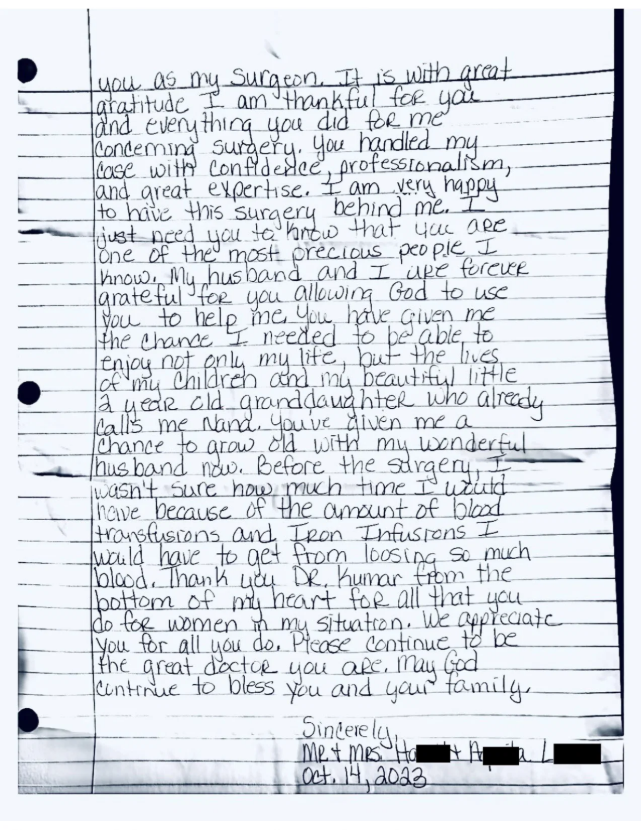 you as my surgeon. It is with great
gratitude I am thankful for you
and everything you did for me
concerning surgery. You handled my
case with confidence, professionalism,
and great expertise. I am very happy
to have this surgery behind me. I
just need you to know that you are
one of the most precious people I
know. My husband and I are forever
grateful for you allowing God to use
you to help me. You have given me
the chance I needed to be able to
enjoy not only my life, but the lives
of my children and my beautiful little
2 year old granddaughter who already
calls me Nana. You've given me a
chance to grow old with my wonderful
husband now. Before the surgery, I
wasn't sure how much time I would
have because of the amount of blood
transfusions and Iron Infusions I
would have to get from loosing so much
blood. Thank you DR. Kumar from the
bottom of my heart for all that you
do for women in my situation. We appreciate
you for all you do. Please continue to be
the great doctor you are. May God
continue to bless you and your family.
Sincerely,
MR + MRS. Ho + A L
Oct. 14, 2023